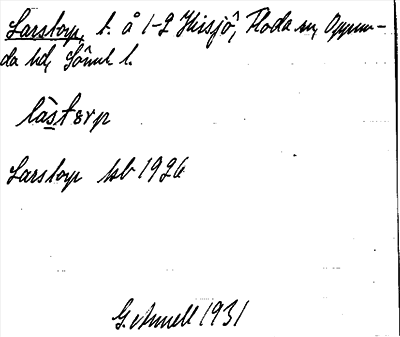 Larstorp, t. å 1-2 Kisjö, Floda sn, Oppun-
da hd, Söml l.
làstərp
Larstorp kb 1926
G. Armell 1931